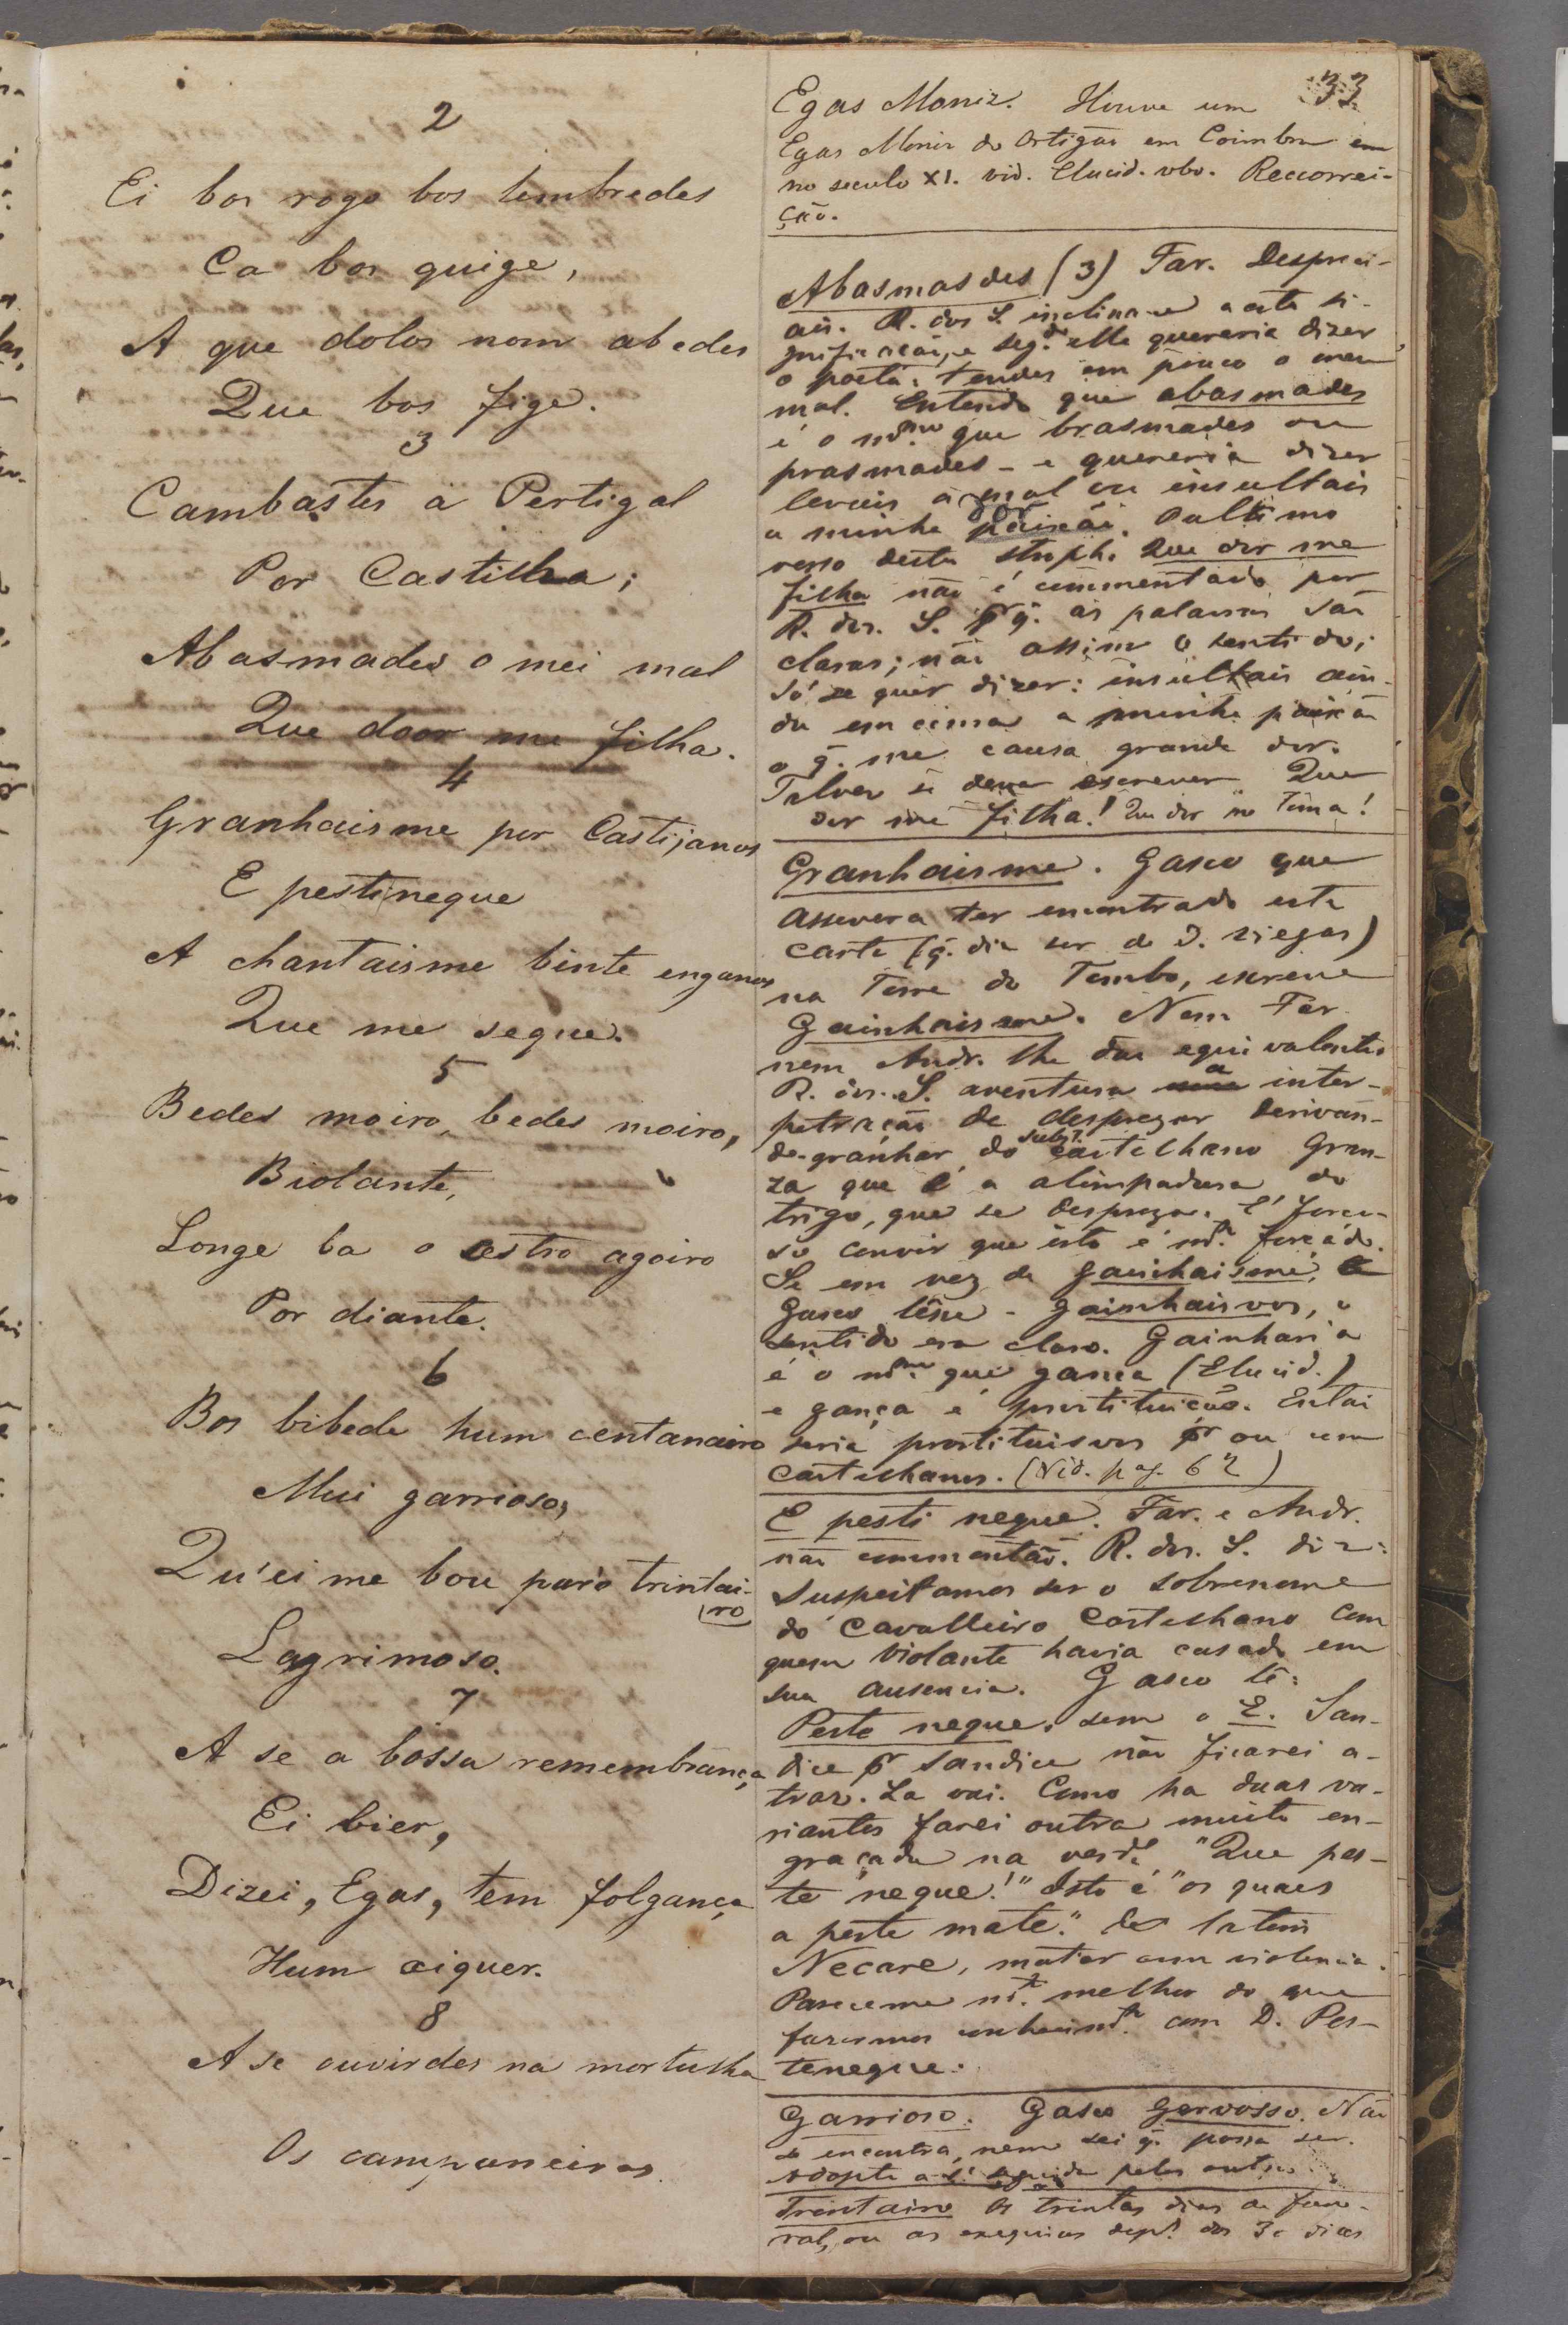 2
Ei bos rogo bos lembredes
Ca bos quige,
A que dolos nom abedes
Que bos fige.
3
Cambastes a Pertigal
Por Castilha;
Abasmades o mei mal
Que door me filha.
4
Granhaisme por Castijanos
E pestineque
A chantaisme binte enganos
Que me segue.
5
Bedes moiro, bedes moiro,
Biolante,
Longe ba o estro agoiro
Por diante.
6
Bos bibede hum centanairo
Mui garrioso,
Qu'ei me bou paro trintai-
ro
Lagrimoso.
7
A se a bossa remembrança
Ei bier,
Dizei, Egas, tem folgança
Hum aiquer.
8
A se ouvirdes na mortulha
Os campaneiros.
33
Egas Moniz. Houve um
Egas Moniz do Ortigão em Coimbra em
no seculo XI. vid. Elucid. vbo. Reccorrei-
ção.
Abasmasdes (3) Far. Despreci-
ais. R. dos S. inclina-se a esta si-
gnificação, e seg.do elle quereria dizer
o poeta: tendes em pouco o meu
mal. Entendo que abasmades
é o m.mo que brasmades ou
prasmades - e quereria dizer
levais a mal ou insultais
a minha paixão. O ultimo
verso desta stroph. Que dor me
filha não é commentado por
R. dos. S. pr q. as palavras são
claras; não assim o sentido;
só se quer dizer: insultais ain-
da em cima a minha paixão
o q. me causa grande dor.
Talvez se deva escrever Que
dor me filha! Que dor me toma!
Granhaisme. Gasco que
assevera ter encontrado esta
carta (q. diz ser de D. Viegas)
na Torre do Tombo, escreve
Gainhaisme. Nem Far.
nem Andr. lhe dão equivalentes
R. dos. S. aventura a inter-
petração de desprezar derivan-
do-granhar do subst. castelhano Gran-
za que é a alimpadura do
trigo, que se despreza. É forço-
so convir que isto é m.to forçado.
Se em vez de gainhaisme,
Gasco lêsse - gainhaisvos, o
sentido era claro. Gainharia
é o m.mo que gança (Elucid.)
e gança é prostituição. Então
seria prostituisvos pr ou com
castelhanos. (Vid. pag. 62)
E pesti neque. Far. e Andr.
não commentão. R. dos. S. diz:
Suspeitamos ser o sobrenome
do Cavalleiro Castelhano com
quem Violante havia casado em
sua ausencia. Gasco lê:
Peste neque, sem o E. San-
dice pr sandice não ficarei a-
traz. La vai. Como ha duas va-
riantes farei outra muito en-
graçada na verd.e "Que pes-
te neque!" Isto é "os quaes
a peste mate." do latim
Necare, matar com violencia.
Pareceme m.to melhor do que
fazermos conhecim.to com D. Pes-
teneque.
Garrioso. Gasco Gorvosso. Não
se encontra, nem sei q. possa ser.
Adopto a lição seguida pelos outros.
Trintairo Os trintas dias do fune-
ral, ou as exequias dep.s dos 30 dias